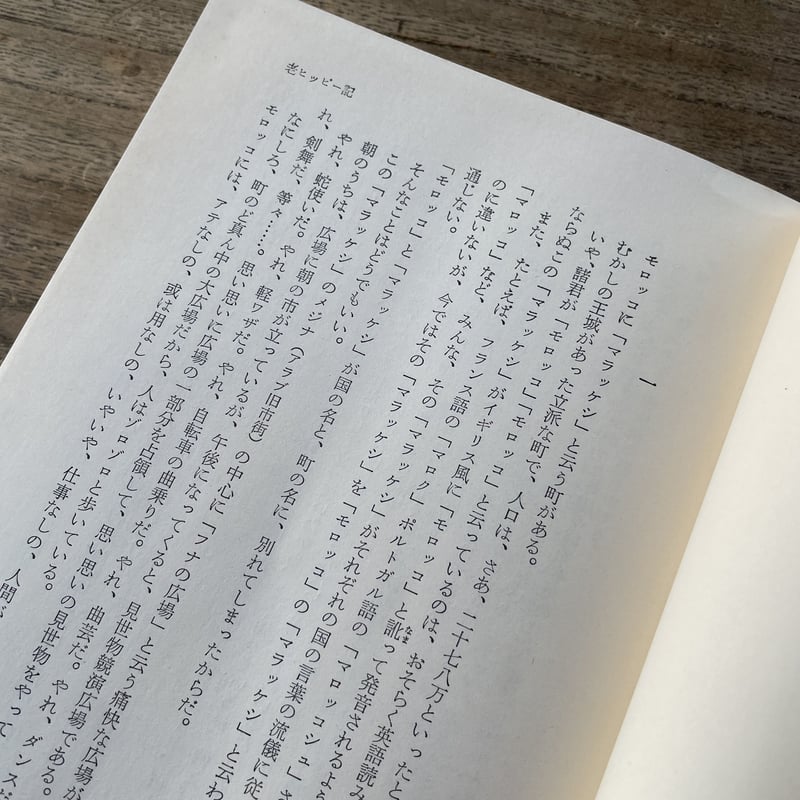 老ヒッピー記
一
モロッコに「マラッケシ」と云う町がある。
むかしの王城があった立派な町で、人口は、さあ、二十七八万といったと
いや、諸君が「モロッコ」「モロッコ」と云っているのは、おそらく英語読み
ならぬこの「マラッケシ」がイギリス風に「モロッコ」と訛って発音されるよう
また、たとえば、フランス語の「マロク」ポルトガル語の「マロッコシュ」さ
「マロッコ」など、みんな、その「マラッケシ」がそれぞれの国の言葉の流儀に従
のに違いないが、今ではその「マラッケシ」を「モロッコ」の「マラッケシ」と云わ
通じない。
「モロッコ」と「マラッケシ」が国の名と、町の名に、別れてしまったからだ。
そんなことはどうでもいい。
この「マラッケシ」のメジナ(アラブ旧市街)の中心に「フナの広場」と云う痛快な広場が
朝のうちは、広場に朝の市が立っているが、午後になってくると、見世物競演広場である。
やれ、蛇使いだ。やれ、軽ワザだ。やれ、自転車の曲乗りだ。やれ、曲芸だ。やれ、ダンスだ
れ、剣舞だ、等々……。思い思いに広場の一部分を占領して、思い思いの見世物をやって
なにしろ、町のど真ん中の大広場だから、人はゾロゾロと歩いている。
モロッコには、アテなしの、或は用なしの、いやいや、仕事なしの、人間が